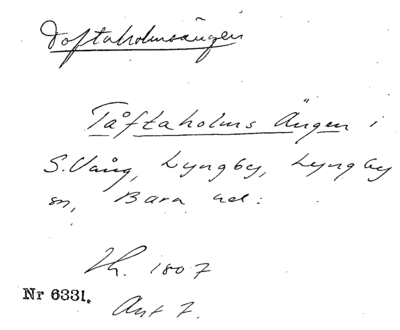 Doftaholmsängen
Tåftaholms Ängen i
S. Vång, Lyngby, Lyngby
sn, Bara hd:
Lh. 1807
Nr 6331.
Ant 7.